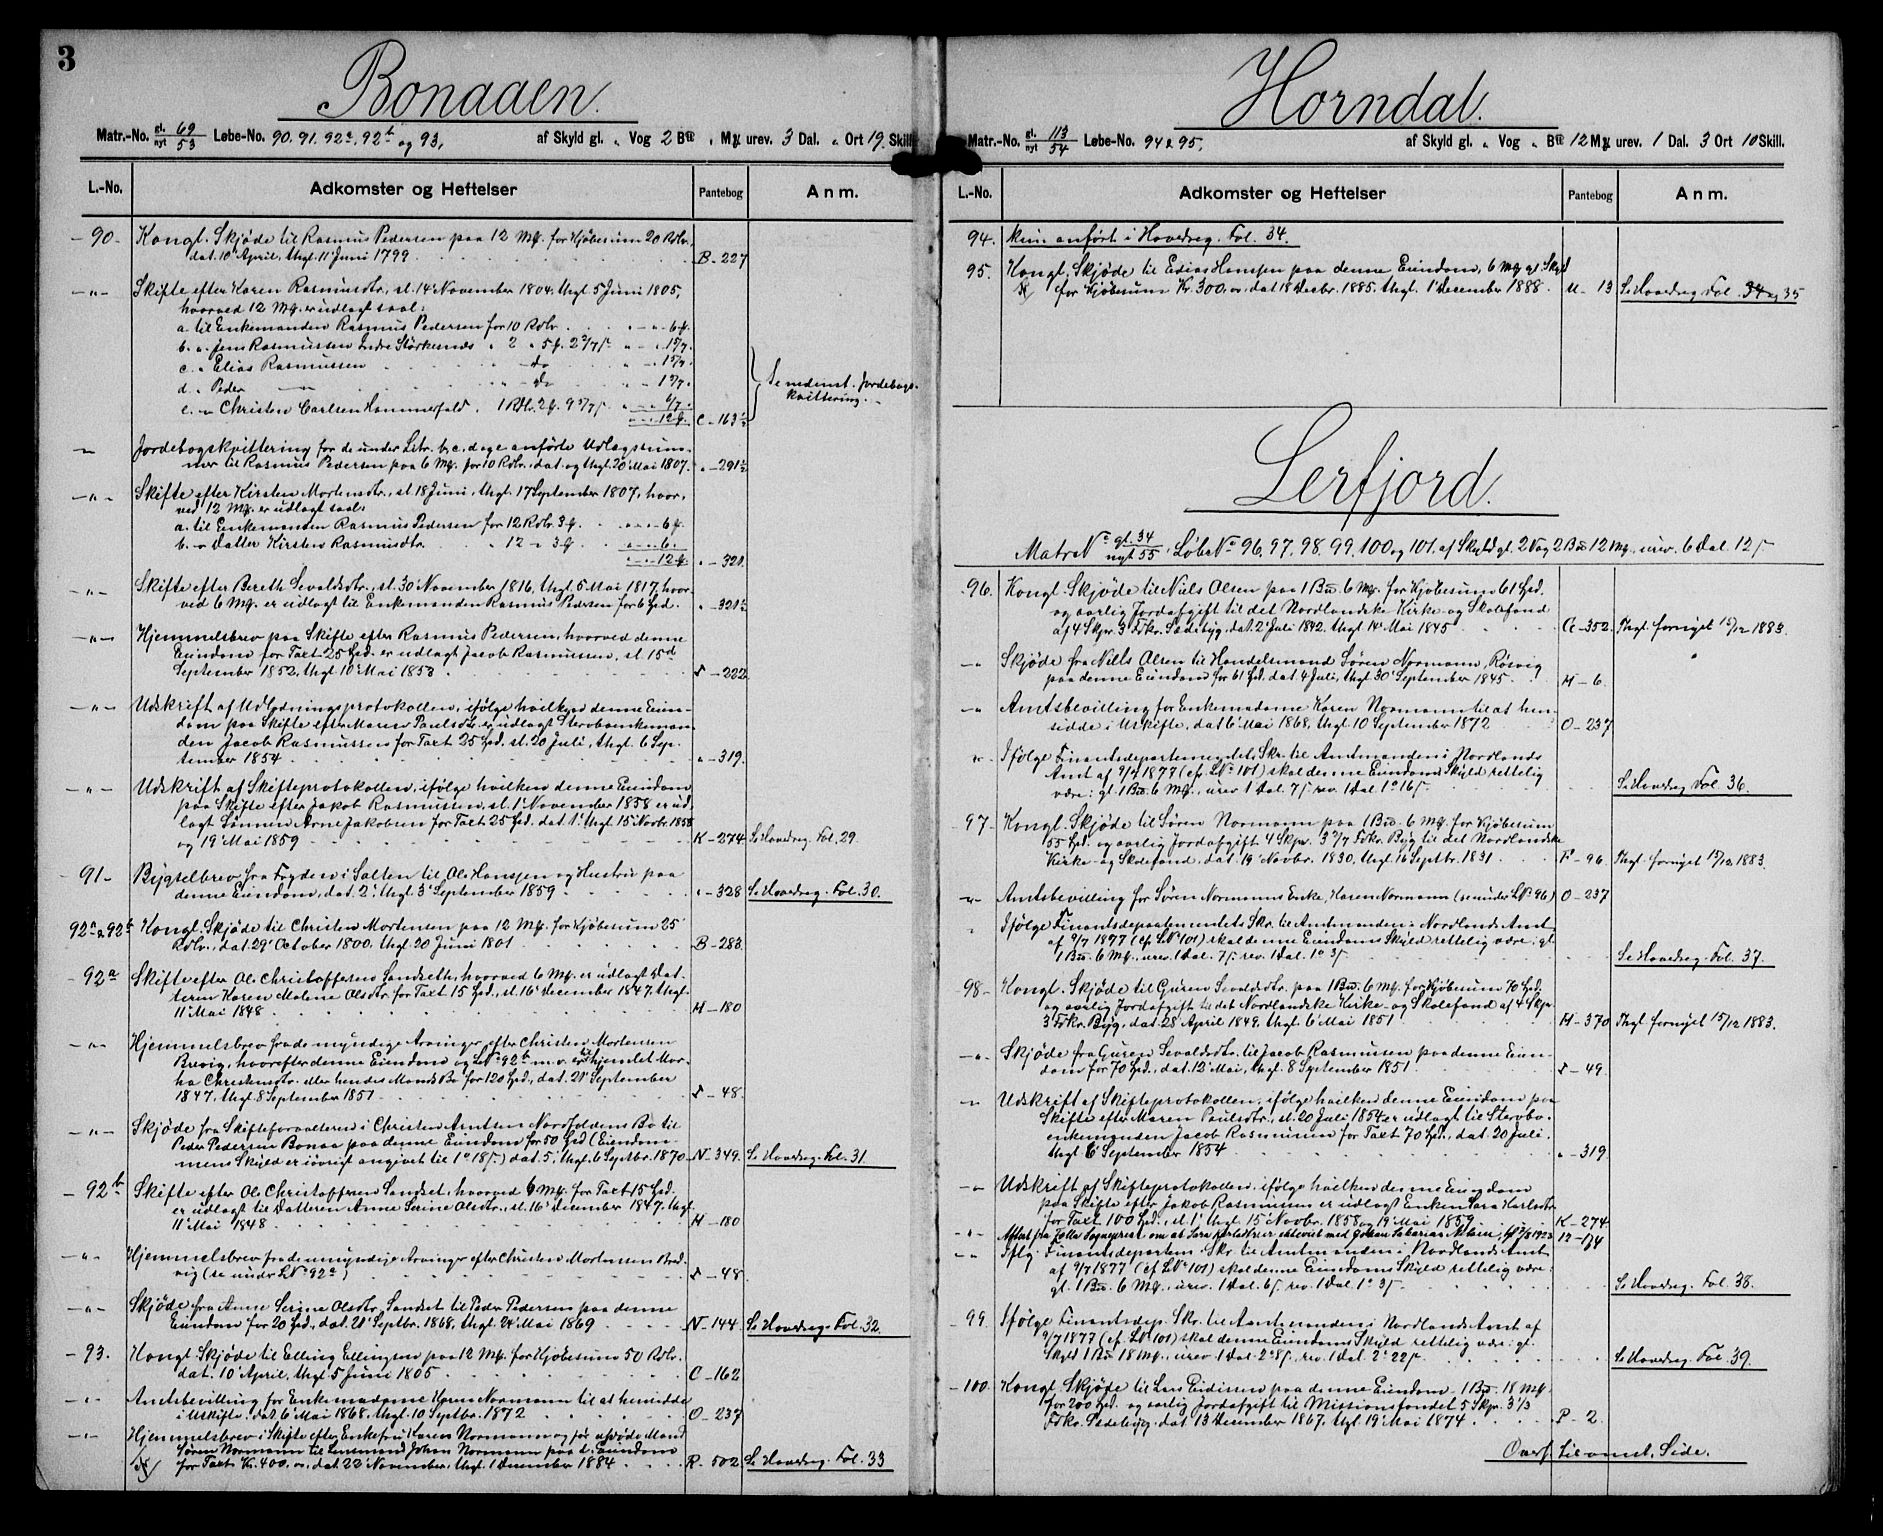 3
Bonaaen.
Matr.-No. gl. 69 / nyt 53 Løbe-No. 90. 91. 92ᵃ, 92ᵇ og 93, af Skyld gl. „ Vog 2 B℔ „ M℔ urev. 3 Dal. „ Ort 19 Skill.
L.-No. Adkomster og Heftelser Pantebog Anm.
- 90 - Kongl. Skjøde til Rasmus Pedersen paa 12 M℔. for Kjøbesum 20 Rdlr.
dat. 10' April, thgl. 11' Juni 1799 B - 227
- „ - Skifte efter Karen Rasmusdtr., sl. 14' November 1804, thgl. 5 Juni 1805,
hvorved 12 M℔. er udlagt saal:
a. til Enkemanden Rasmus Pedersen for 10 Rdlr. „ - „ - 6 ℔.
b. „ Jens Rasmussen Indre Størkesnæs „ 2 „ 5 ℔. 2 2/7 ſ „ - „ 1 5/7.
c. „ Elias Rasmussen - do - „ - „ 1 5/7.
d. „ Peder - „ - - do „ - 1 5/7.
e. „ Christen Carlsen Hammerfald. 1 Rdlr. 2 ℔. 9 3/7 ſ „ - „ 6/7.
„ - „ - 12 ℔. C - 163½
Se nedenst. Jordebogs-
kvittering.
- „ - Jordebogskvittering for de under Litr. b, c, d og e anførte Udlagssum-
mer til Rasmus Pedersen paa 6 M℔. for 10 Rdlr., dat. og thgl. 20' Mai 1807. „ - 291½
- „ - Skifte efter Kirsten Mortensdtr., sl. 18 Juni, thgl. 17 September 1807, hvor,
ved 12 M℔. er udlagt saal:
a. til Enkemanden Rasmus Pedersen for 12 Rdlr. 3 ℔. „ - „ - 6 ℔.
b. „ Datter Kirsten Rasmusdtr. „ 12 „ 3 ℔. „ - „ - 6.
„ - „ - 12 ℔. „ - 321
- „ - Skifte efter Bereth Sevaldsdtr., sl. 30' November 1816, thgl. 5 Mai 1817, hvor
ved 6 M℔. er udlagt til Enkemanden Rasmus Pedersen for 6 Spd. „ - 321½
- „ - Hjemmelsbrev paa Skifte efter Rasmus Pedersen, hvorved denne
Eiendom for Taxt 25 Spd. er udlagt Jacob Rasmussen, sl. 15d
September 1852, thgl. 10' Mai 1853 J - 222
- „ - Udskrift af Udlodningsprotokollen, ifølge hvilken denne Eien-
dom paa Skifte efter Maren Paulsdtr. er udlagt Stervboenkeman-
den Jacob Rasmussen for Taxt 25 Spd. sl. 20 Juli, thgl. 6 Sep-
tember 1854 „ - 319.
- „ - Udskrift af Skifteprotokollen, ifølge hvilken denne Eiendom
paa Skifte efter Jakob Rasmussen, sl. 1' November 1858 er ud-
lagt Sønnen Arne Jakobsen for Taxt 25 Spd. dat. 1' thgl. 15' Novbr. 1858
og 19' Mai 1859 K - 274 Se Hovedreg. Fol. 29.
- 91 - Bygselbrev fra Fogden i Salten til Ole Hanssen og Hustru paa
denne Eiendom, dat. 2' thgl. 3' September 1859 „ - 328 Se Hovedreg. Fol. 30.
92ᵃ & 92ᵇ Kongl. Skjøde til Christen Mortensen paa 12 M℔. for Kjøbesum 25
Rdlr., dat. 29' October 1800, thgl. 20 Juni 1801 B - 283
- 92ᵃ Skifte efter Ole Christoffersen Sandseth, hvorved 6 M℔. er udlagt Dat-
teren Karen Malene Olsdtr. for Taxt 15 Spd., sl. 16' December 1847, thgl.
11' Mai 1848 H - 180
- „ - Hjemmelsbrev fra de myndige Arvinger efter Christen Mortensen
Brevig, hvorefter denne Eiendom og L№ 92ᵇ m. v. er udhjemlet Mor-
ha Christensdtr. eller hendes Mands Bo for 120 Spd., dat. 21' September
1847, thgl. 8 September 1851 J - 48.
- „ - Skjøde fra Skifteforvalteren i Christen Arntsen Nordfoldens Bo til
Peder Pedersen Bonaa paa denne Eiendom for 50 Spd (Eiendom-
mens Skyld er iøvrigt angivet til 1 ° 18 ſ.) dat. 5' thgl. 6 Septbr. 1870 N - 349. Se Hovedreg. Fol. 31.
- 92ᵇ Skifte efter Ole Christoffersen Sandset, hvorved 6 M℔. for Taxt 15 Spd.
er udlagt til Datteren Anne Serine Olsdtr., sl. 16' December 1847, thgl.
11' Mai 1848 H - 180
- „ - Hjemmelsbrev fra de myndige Arvinger efter Christen Mortensen Bred-
vig (se under L№ 92ᵃ) J - 48.
- „ - Skjøde fra Anne Serine Olsdtr. Sandset til Peder Pedersen paa denne
Eiendom for 20 Spd., dat. 21' Septbr. 1868, thgl. 24' Mai 1869 N - 144. Se Hovedreg. Fol. 32.
- 93. Kongl. Skjøde til Elling Ellingsen paa 12 M℔. for Kjøbesum 50 Rdlr.
dat. 10' April, thgl. 5 Juni 1805 C - 162
- „ - Amtsbevilling for Enkemadame Karen Normann til at hensidde
i Uskifte, dat. 6' Mai 1868, thgl. 10 Septbr. 1872 O - 237
- „ - Hjemmelsbrev i Skifte efter Enkefru Karen Normann og før afdøde Mand
Søren Normann til Lensmand Johan Normann paa d: Eiendom
for Taxt Kr. 400,00, dat. 22' November, thgl. 1 December 1884 R - 502 Se Hovedreg. Fol. 33
Horndal.
Matr.-No. gl. 113 / nyt 54 Løbe-No. 94 & 95, af Skyld gl. „ Vog „ B℔ 12 M℔ urev. 1 Dal. 3 Ort 10 Skill.
L.-No. Adkomster og Heftelser Pantebog Anm.
94. kun anført i Hovedreg. Fol. 34.
95. Kongl. Skjøde til Edias Hansen paa denne Eiendom, 6 M℔ gl. Skyld
for Kjøbesum Kr. 300,00, dat. 18 Decbr. 1885. thgl. 1' December 1888. U - 13 Se Hovedreg Fol. 34 og 35
Lerfjord.
Matr № gl. 34 / nyt 55, Løb № 96, 97, 98, 99, 100 og 101, af Skyld gl. 2 Vog 2 Bu 12 M℔., urev. 6 Dal. 12 ſ
96. Kongl. Skjøde til Niels Olsen paa 1 Bu. 6 M℔. for Kjøbesum 61 Spd.
og aarlig Jordafgift til det Nordlandske Kirke- og Skolefond
af 4 Skpr. 3 Fdkr. Sædebyg, dat. 2' Juli 1842, thgl. 14' Mai 1845 G - 352. Thgl. fornyet 15/12 1883.
- „ Skjøde fra Niels Olsen til Handelsmand Søren Normann, Røsvig
paa denne Eiendom for 61 Spd. dat. 4 Juli, thgl. 30' September 1845 H - 6.
- „ Amtsbevilling for Enkemadame Karen Normann til at hen-
sidde i Uskifte, dat. 6' Mai 1868, thgl. 10 September 1872 O - 237
„ - Ifølge Finantsdepartementets Skr. til Amtmanden i Nordlands
Amt af 9/7 1877 (cf. L№ 101) skal denne Eiendoms Skyld rettelig
være: gl. 1 Bu. 6 M℔., urev. 1 Dal. 7 ſ rev. 1 Dal. 1 ° 16 ſ. Se Hovedreg Fol. 36.
97. Kongl. Skjøde til Søren Normann paa 1 Bu. 6 M℔. for Kjøbesum
55 Spd. og aarlig Jordafgift 4 Skpr. 3 3/7 Fdkr. Byg til det Nordlandske
Kirke- og Skolefond, dat. 19' Novbr. 1830, thgl. 16 Septbr. 1831 F - 96. Thgl. fornyet 15/12 1883.
- „ - Amtsbevilling for Søren Normanns Enke, Karen Normann (se under L№ 96) O - 237
„ Ifølge Finantsdepartementets Skr. til Amtmanden i Nordlands Amt
af 9/7 1877 (cf. L№ 101) skal denne Eiendoms Skyld rettelig være: gl.
1 Bu. 6 M℔., urev. 1 Dal. 7 ſ. rev. 1 Dal. 1 ° 3 ſ Se Hovedreg. Fol. 37.
98 - Kongl. Skjøde til Guren Sevaldsdtr. paa 1 Bu. 6 M℔. for Kjøbesum 70 Spd.
og aarlig Jordafgift til det Nordlandske Kirke- og Skolefond af 4 Skpr.
3 Fdkr. Byg, dat. 28 April 1849, thgl. 6' Mai 1851 H - 370 Thgl fornyet 15/12 1883.
- „ Skjøde fra Guren Sevaldsdtr. til Jacob Rasmussen paa denne Eien-
dom for 70 Spd., dat. 12' Mai, thgl. 8 September 1851 J - 49.
- „ Udskrift af Skifteprotokollen, ifølge hvilken denne Eiendom paa
Skifte efter Maren Paulsdtr., sl. 20 Juli 1854 er udlagt til Stervbo-
enkemanden Jacob Rasmussen for Taxt 70 Spd., dat. 20 Juli,
thgl. 6' September 1854 „ - 319
- „ Udskrift af Skifteprotokollen, ifølge hvilken denne Eiendom
paa Skifte efter Jakob Rasmussen er udlagt Enken Sara Karlsdtr.
for Taxt 100 Spd., sl. 1' thgl. 15' Novbr. 1858 og 19' Mai 1859 K - 274
- „ - Attest fra Folla Sogneprest om at Sara Karlsdtr er ektevied med Johan Sakarias Nilsen, 1923 12 - 174
- „ Iflg. Finantsdepartem. Skr. til Amtmanden i Nordlands Amt
af 9/7 1877 (cf L№ 101) skal denne Eiendoms Skyld rettelig være:
gl. 1 Bu. 6 M℔., urev. 1 Dal. 6 ſ. rev. 1 Dal. 1 ° 3 ſ. Se Hovedreg. Fol. 38.
99. Ifølge Finantsdep. Skr. til Amtmanden i Nordlands Amt af
9/7 1877 (cf. L№ 101) skal denne Eiendoms Skyld rettelig være: gl.
Skyld 1 Bu 18 M℔., urev. 1 Dal. 2 ° 8 ſ., rev. 1 Dal. 2 ° 22 ſ. Se Hovedreg. Fol. 39.
- 100. Kongl. Skjøde til Lars Eidissen paa denne Eiendom - 1 Bu. 18 M℔.
for 200 Spd. og aarlig Jordafgift til Missionsfondet 5 Skpr. 3 1/3
Fdkr. Sædebyg, dat. 13' December 1867, thgl. 19' Mai 1874 P - 2.
Overf. til omst. Side.